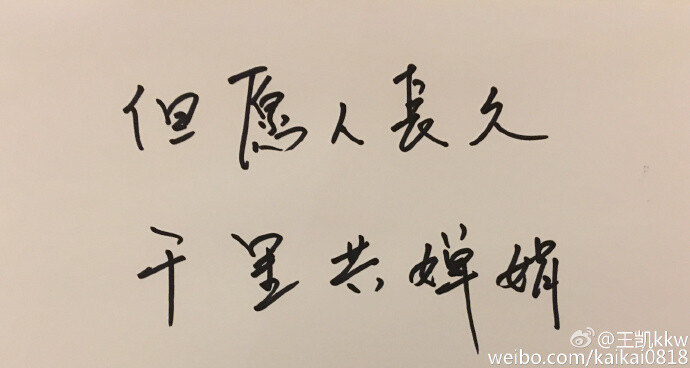 但愿人長久
千里共婵娟
@王凯kkw
weibo.com/kaikai0818